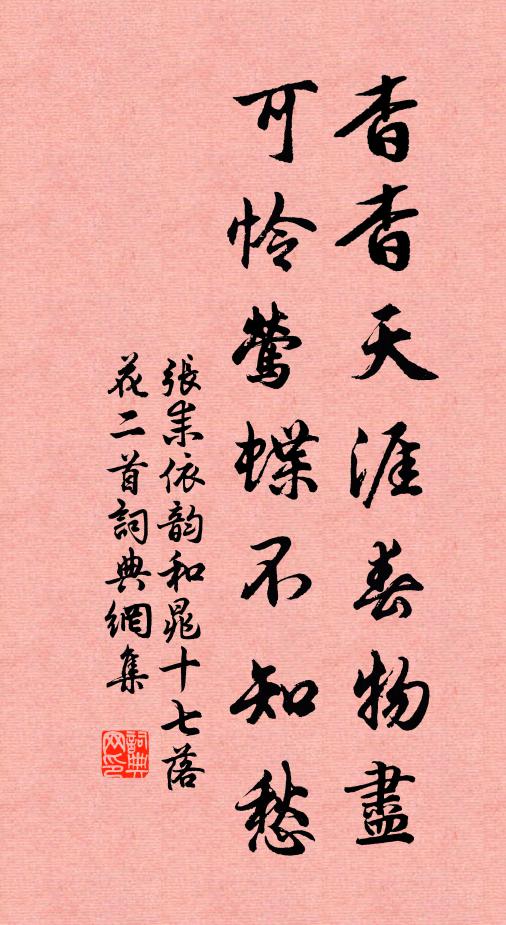 杳杳天涯春物盡
可怜鶯蝶不知愁
張耒依韵和晁十七落
花二首詞典網集
詞典
网印